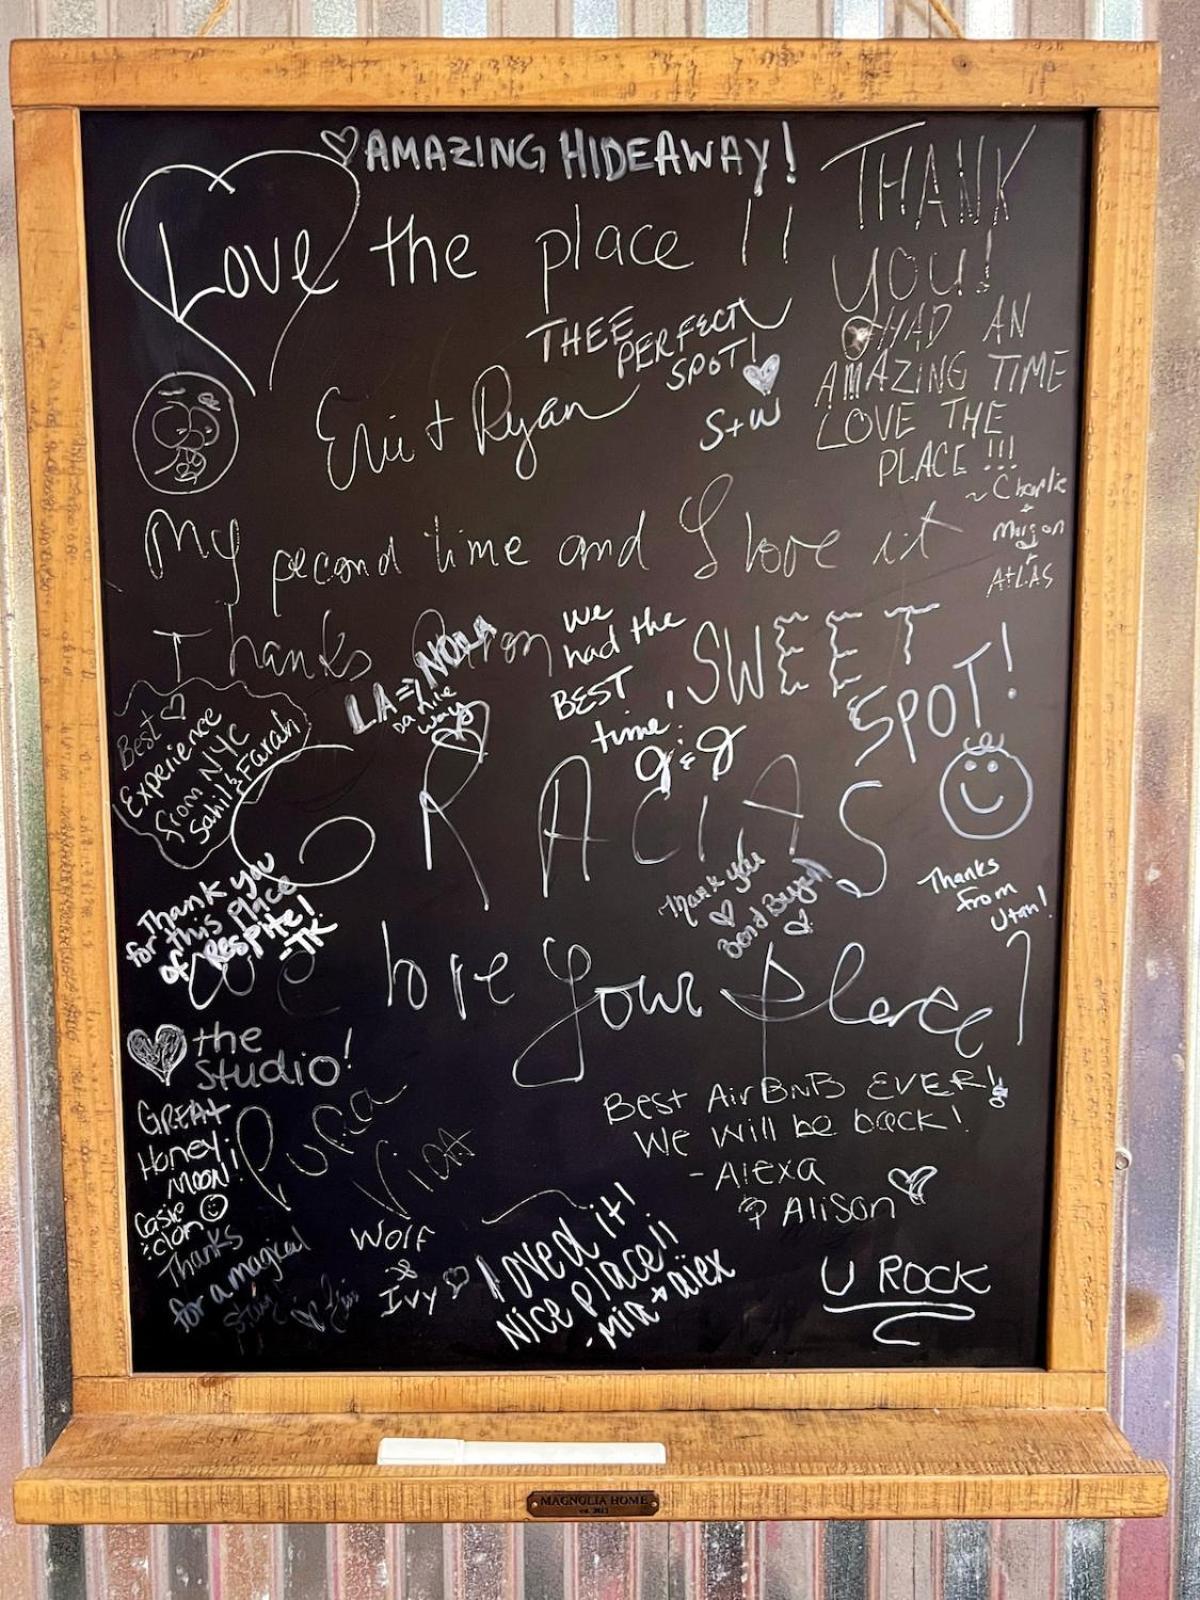 AMAZING HIDEAWAY!
Love the place !!
THANK
YOU!
HAD AN
AMAZING TIME
LOVE THE
PLACE !!!
~ Charlie
+
Morgan
+
ATLAS
THEE PERFECT
SPOT!
S+W
Eric + Ryan
My second time and I love it
Thanks
LA => NOLA
on the
way
we
had the
BEST
time!
J & J
SWEET
SPOT!
Best
Experience
from NYC
Sahil & Farah
GRACIAS
Thank you
for this place
of RESPITE!
-TK
Thank you
Thanks
from
Utah!
We love your place!
the
Studio!
GREAT
Honey
MOON!
Pura
Vida
Best AirBNB EVER!
We will be back!
- Alexa
& Alison
Thanks
for a magical
stay!
Wolf
&
Ivy
Loved it!
Nice place!!
- Mia + alex
U ROCK
MAGNOLIA HOME